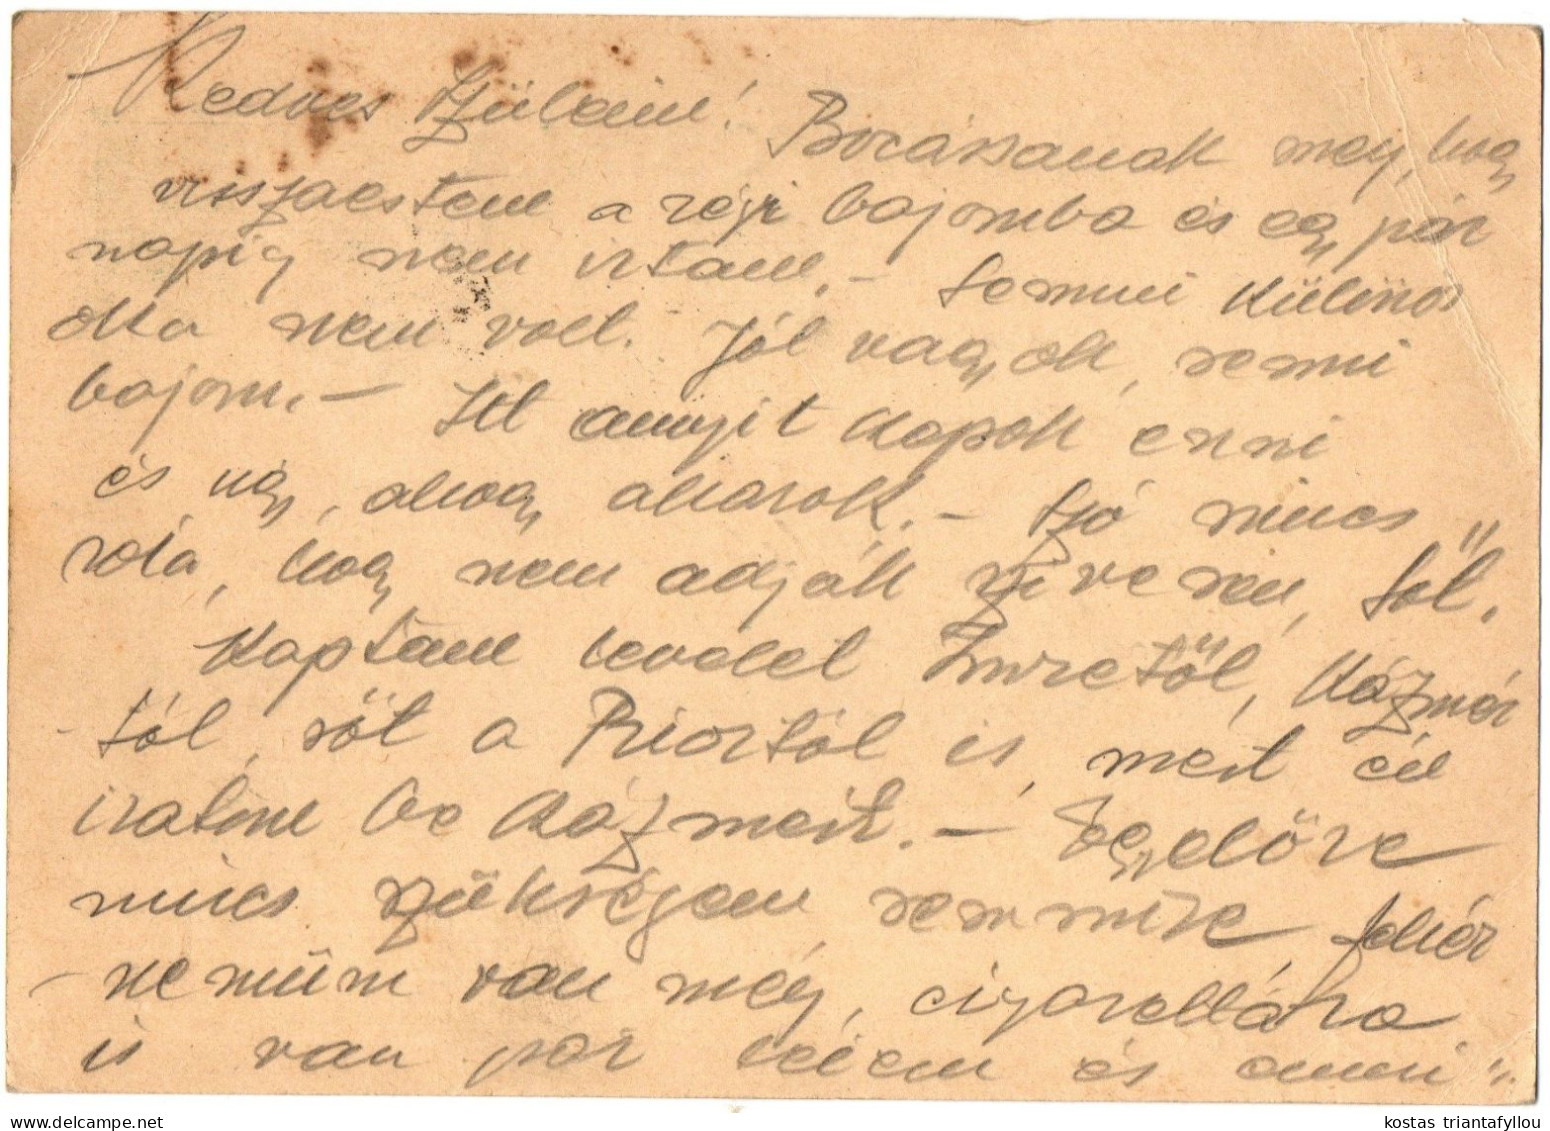 Kedves Szüleim! Bocássanak meg, hog
visszaestem a régi bajomba és eg, pár
napig nem irtam. - Semmi különös
oka nem volt. Jól vag,ok, semmi
bajom. - Itt annyit kapok enni
és úg, ahog, akarok. - Szó nincs
róla, hog, nem adják szivesen, sőt.
Kaptam levelet Imretől, Kázmér
tól, sőt a Priortól is, mert én
iratom be Kázmért. - Eg,előre
nincs szükségem semmire, fehér
neműm van még, cigarettára
is van pár lejem és enni
kostas triantafyllou